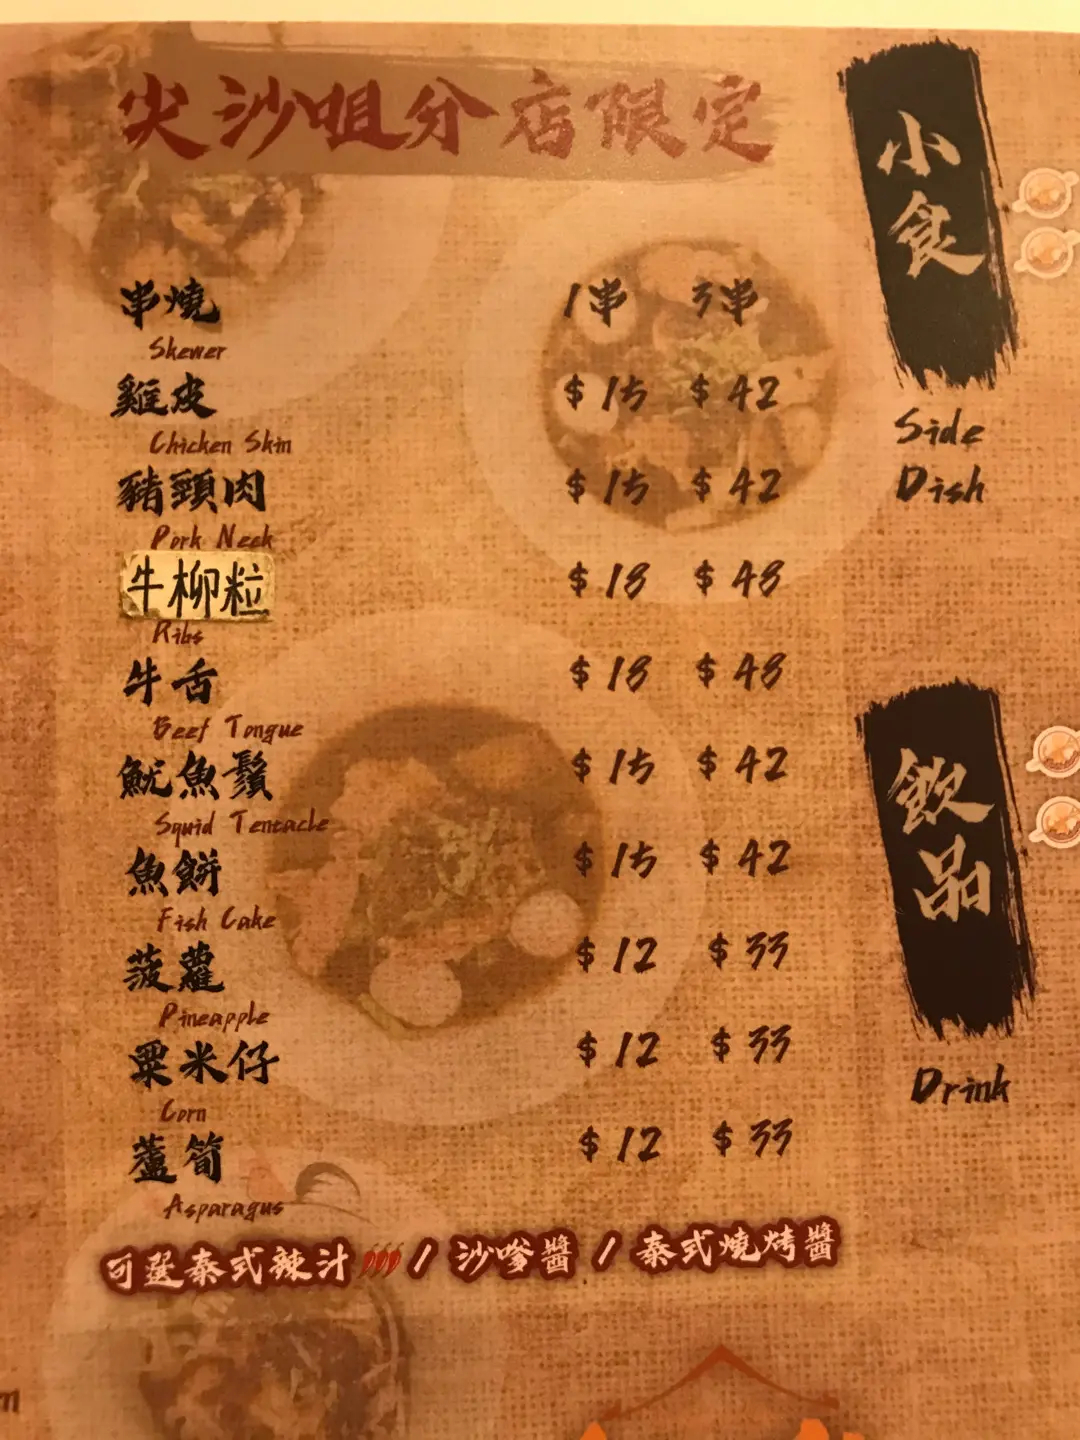 尖沙咀分店限定
串燒 1串 3串
Skewer
雞皮 $15 $42
Chicken Skin
豬頸肉 $15 $42
Pork Neck
牛柳粒 $18 $48
Ribs
牛舌 $18 $48
Beef Tongue
魷魚鬚 $15 $42
Squid Tentacle
魚餅 $15 $42
Fish Cake
菠蘿 $12 $33
Pineapple
粟米仔 $12 $33
Corn
蘆筍 $12 $33
Asparagus
可選泰式辣汁 / 沙嗲醬 / 泰式燒烤醬
小食
Side
Dish
飲品
Drink